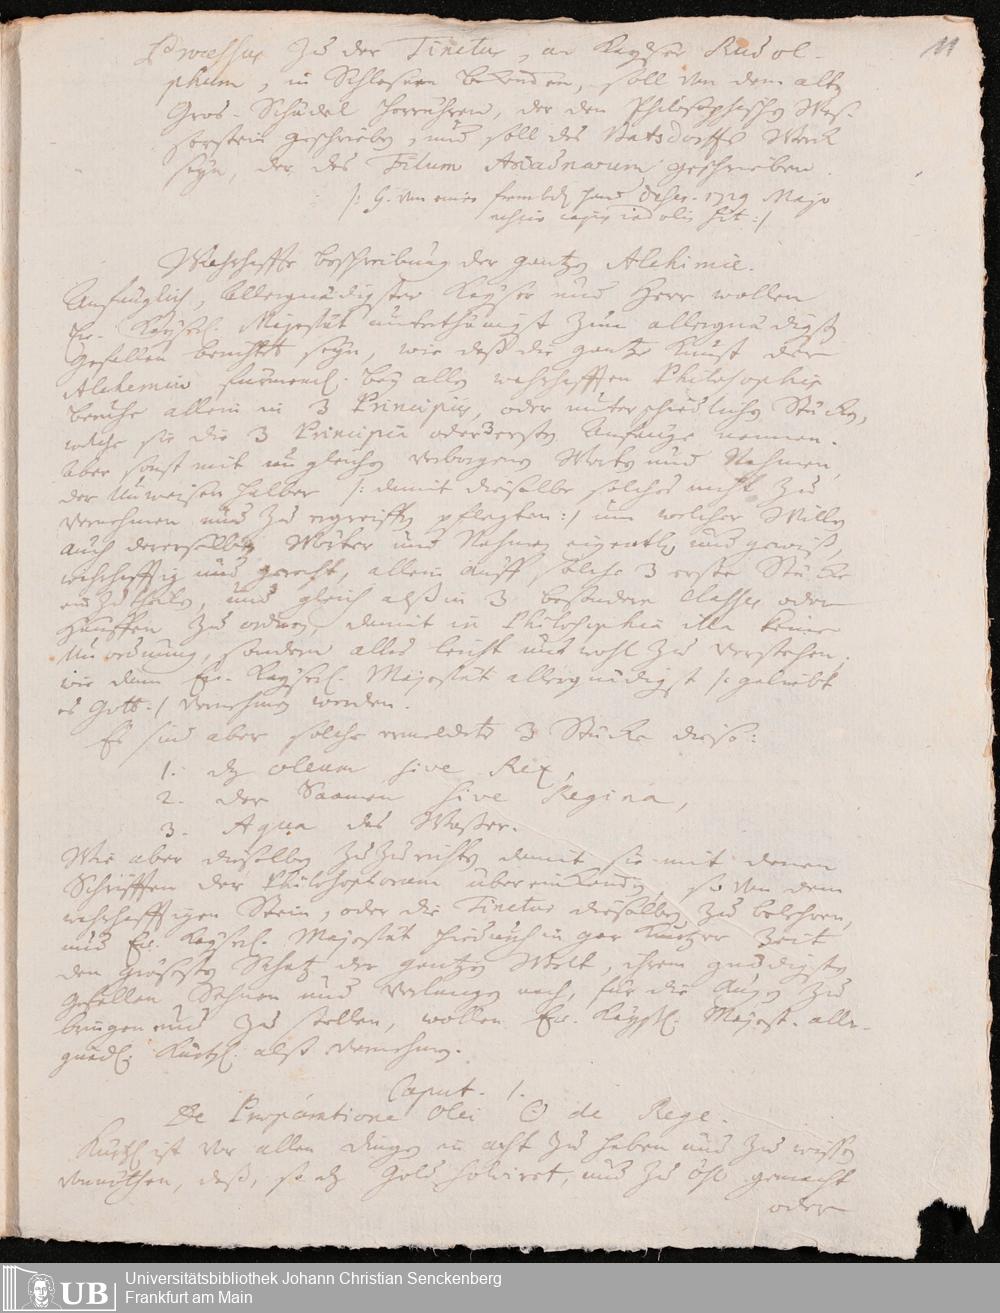 11
Processus zu der Tinctur, an Kayser Rudol-
phum, in Schlesien befunden, soll von dem alten
Gros-Schädel herrühren, der den Philosophischen Was-
serstein geschrieben, und soll des Batsdorffs Werck
seyn, der des Filum Ariadnaeum geschrieben.
/: G. von einer frembden Hand 1729 Majo
:/
Wahrhaffte Beschreibung der gantzen Alchimie.
Anfänglich, Allergnädigster Kayser und Herr wollen
Ew. Kayserl. Majestät unterthänigst zum allergnädigsten
Gefallen berichtet seyn, wie daß die gantze Kunst der
Alchemiae bey allen wahrhafften Philosophis
beruhe allein in 3 Principiis, oder unterschiedlichen Stücken,
welche sie die 3 Principia oder 3 ersten Anfänge nennen.
Aber sonst mit ungleichen verborgenen Worten und Nahmen,
der Unweisen halber /: damit dieselbe solches nicht zu
vernehmen und zu ergreiffen pflegten :/ um welcher Willen
auch derenselben Wörter und Nahmen eigentl. und gewiß,
wahrhafftig und gerecht, allein auff solche 3 erste Stücke
einzutheilen, und gleich alß in 3 besondere Classes oder
Hauffen zu ordnen, damit in Philosophia illa keine
Unordnung, sondern alles leicht und wohl zu verstehen,
wie dann Ew. Kayserl. Majestät allergnädigst /: geliebt
es Gott :/ vernehmen werden.
Es sind aber solche vermeldete 3 Stücke diese:
1. dz oleum sive Rex,
2. der Saamen sive Regina,
3. Aqua das Wasser.
Wie aber dieselben zuzurichten damit sie mit denen
Schrifften der Philosophorum übereinkommen, so von dem
wahrhafftigen Stein, oder die Tinctur dieselben zu belehren,
und Ew. Kayserl. Majestät hierdurch in gar kurtzer Zeit
den grössesten Schatz der gantzen Welt, ihrem gnädigsten
Gefallen, Sehnen und Verlangen nach, für die Augen zu
bringen und zu stellen, wollen Ew. Kayserl. Majest. aller-
gnäd. kürtzl. alß vernehmen.
Caput. 1.
De Praeparatione Olei ☉ de Rege.
Kürtzl. ist vor allen Dingen in acht zu haben und zu wissen
vonnöthen, daß, so dz Gold solviret, und zu Öhl gemacht
oder
Universitätsbibliothek Johann Christian Senckenberg
Frankfurt am Main
UB